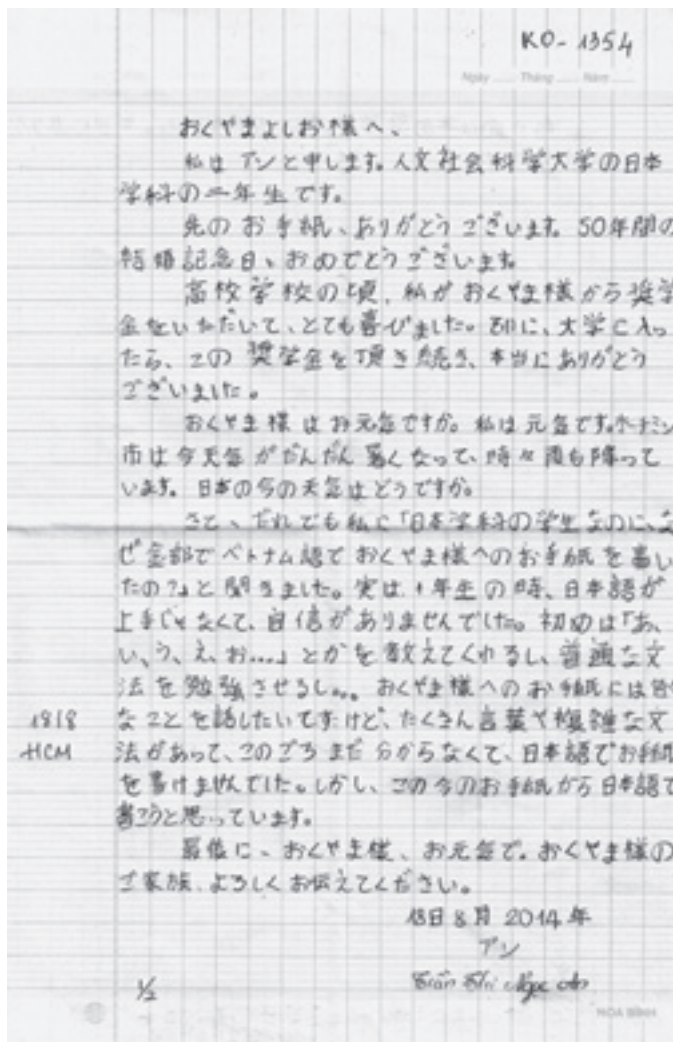 KO-1354
Ngày Tháng Năm
おくやまよしお様へ、
私はアンと申します。人文社会科学大学の日本
学科の二年生です。
先のお手紙、ありがとうございます。50年間の
結婚記念日、おめでとうございます。
高校学校の頃、私がおくやま様から奨学
金をいただいて、とても喜びました。別に、大学に入っ
たら、この奨学金を頂き続き、本当にありがとう
ございました。
おくやま様はお元気ですか。私は元気です。ホーチミン
市は今天気がだんだん暑くなって、時々雨も降って
います。日本の今の天気はどうですか。
さて、だれでも私に「日本学科の学生なのに、な
ぜ全部でベトナム語でおくやま様へのお手紙を書い
たの?」と聞きました。実は、1年生の時、日本語が
上手じゃなくて、自信がありませんでした。初めは「あ、
い、う、え、お...」とかを教えてくれるし、普通な文
法を勉強させるし... おくやま様へのお手紙には
なことを話したいですけど、たくさん言葉や複雑な文
1818
HCM
法があって、このごろまだ分からなくて、日本語でお手紙
を書けませんでした。しかし、この今のお手紙から日本語で
書こうと思っています。
最後に、おくやま様、お元気で。おくやま様の
ご家族、よろしくお伝えてください。
18日8月 2014年
アン
Trần Thị Ngọc An
1/2
HOA BÌNH